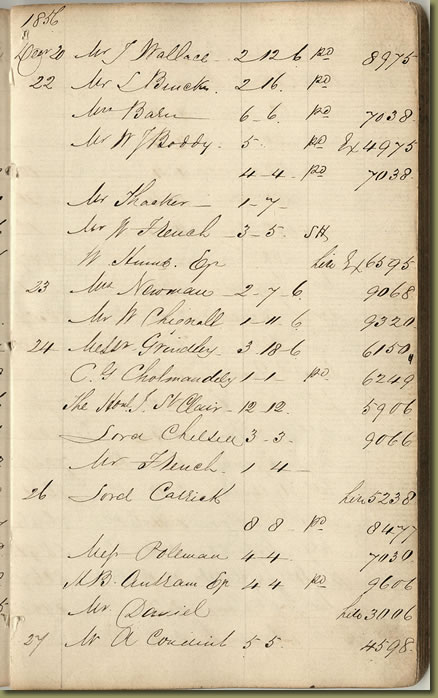 1856
20 Mr J Wallace 2 12 6 pd 8975
22 Mr L 2 16 pd
6-6 pd 7038
Mr W J Boddy 5 pd Ex 4975
4-4 pd 7038
Mr Thacker 1-7
Mr W French 3-5 SH
W Ex 6595
23 Mrs Newman 2-7 6 9068
Mr W Chignell 1-11 6 9320
24 Messrs Grindley 3 18 6 6150
C. G Cholmondeley 1-1 pd 6249
The Honl. J. St Clair 12 12 5906
Lord Chelsea 3-3 9066
Mr French 1 4
26 Lord Carrick 5238
8 8 pd 8477
Poleman 4-4 7030
4 4 pd 9606
Mr Daniel 3006
27 Mr A 5 5 4598